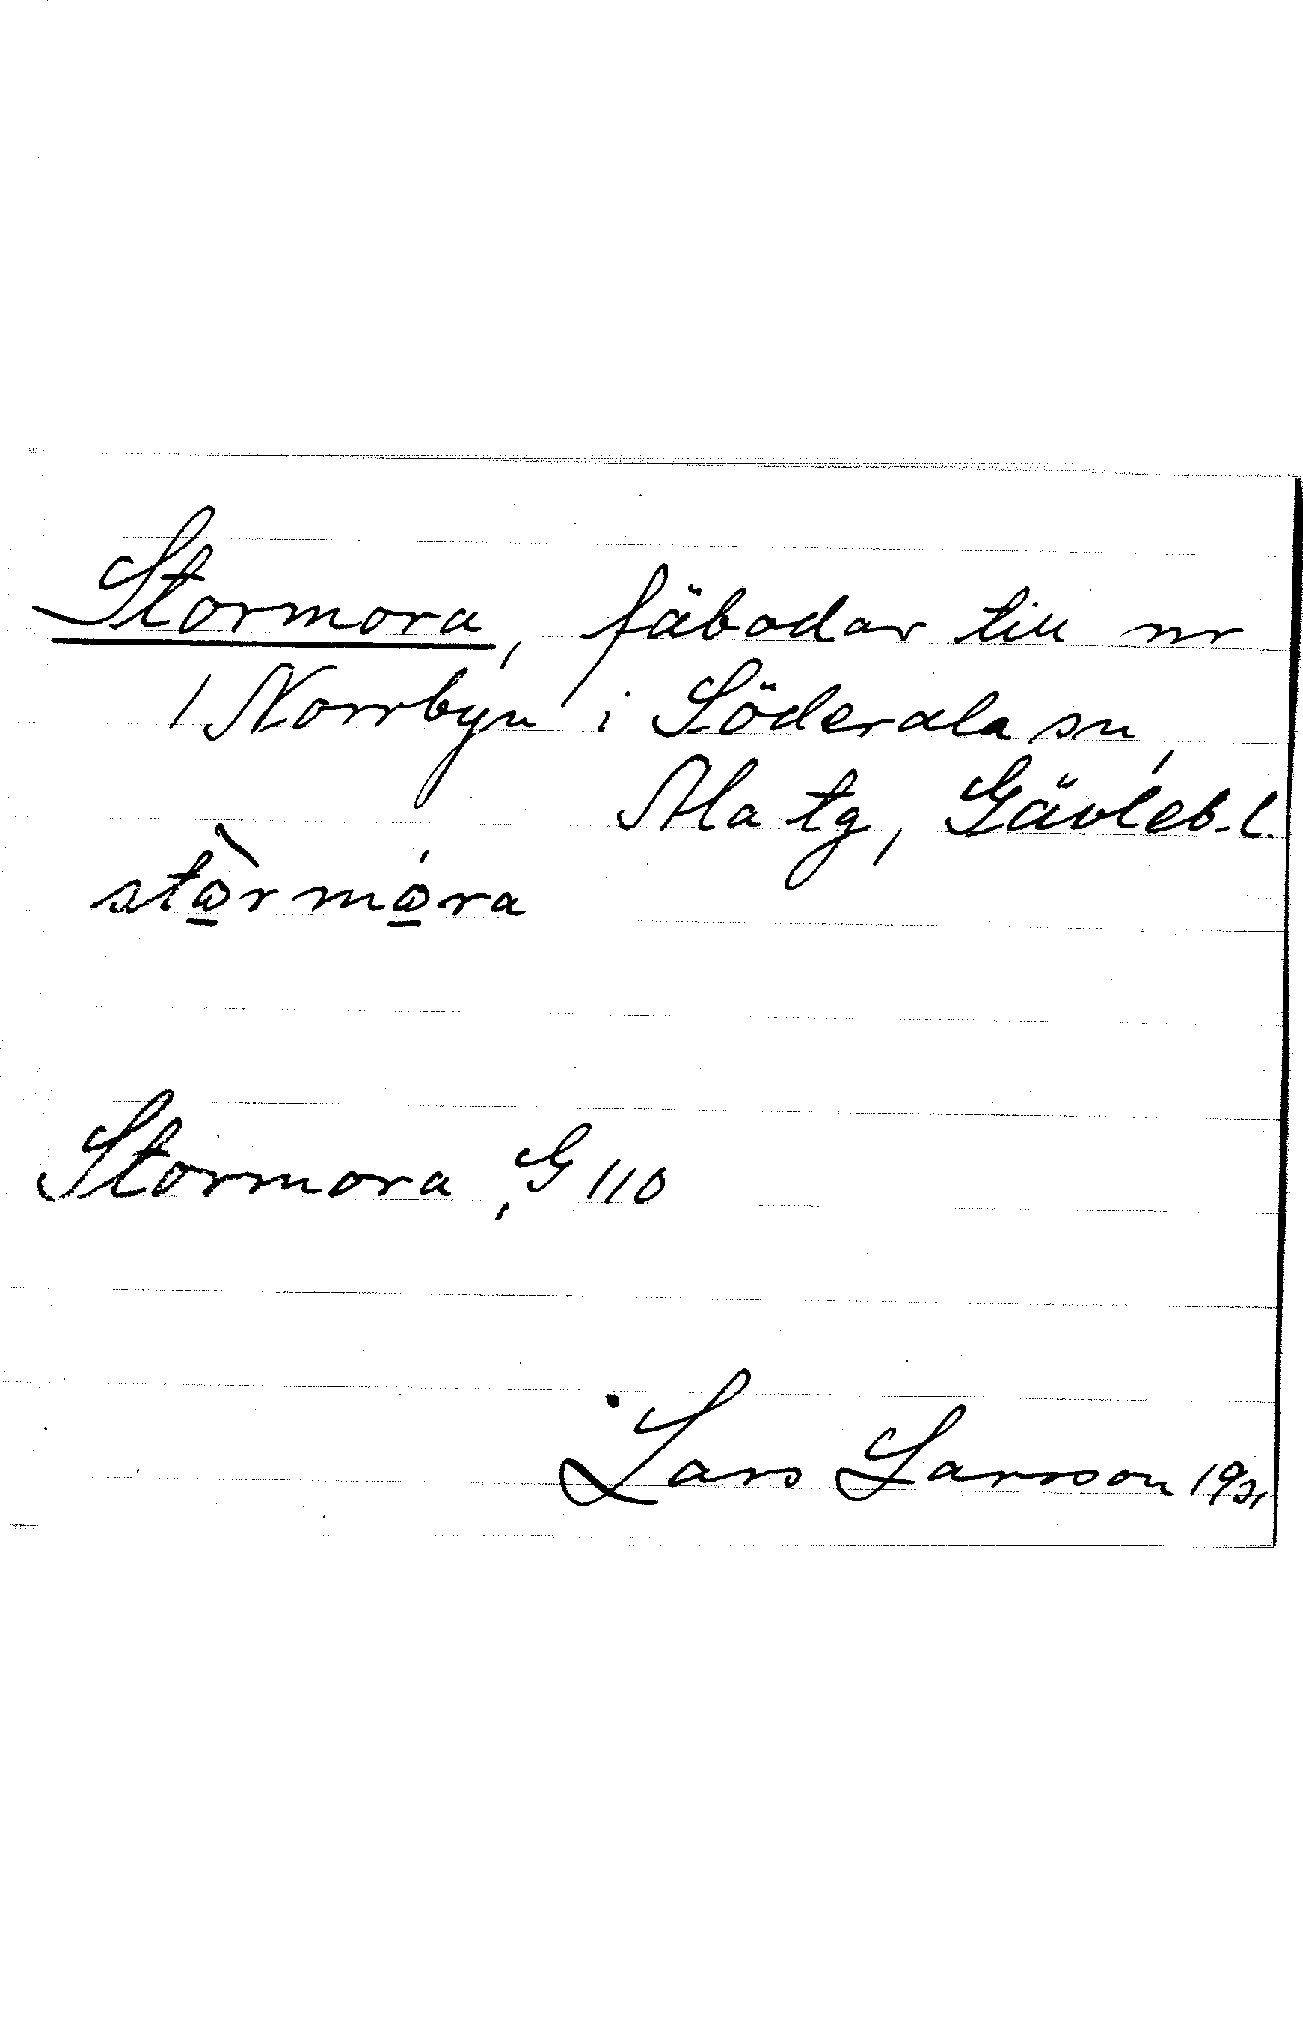 Stormora, fäbodar till nr
1 Norrbyn i Söderala sn,
Ala tg, Gävleb. l.
stὼ̲rmώ̲ra
Stormora, G 110
Lars Larsson